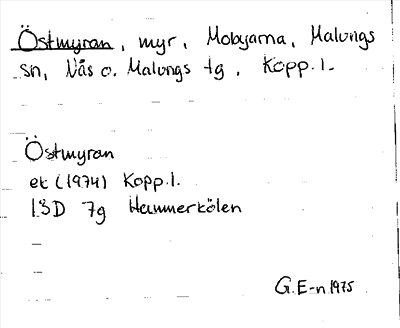 Östmyran, myr, Mobyarna, Malungs
sn, Nås o. Malungs tg, Kopp.l.
Östmyran
ek (1974) Kopp.l.
13D 7g Hammerkölen
G.E-n 1975